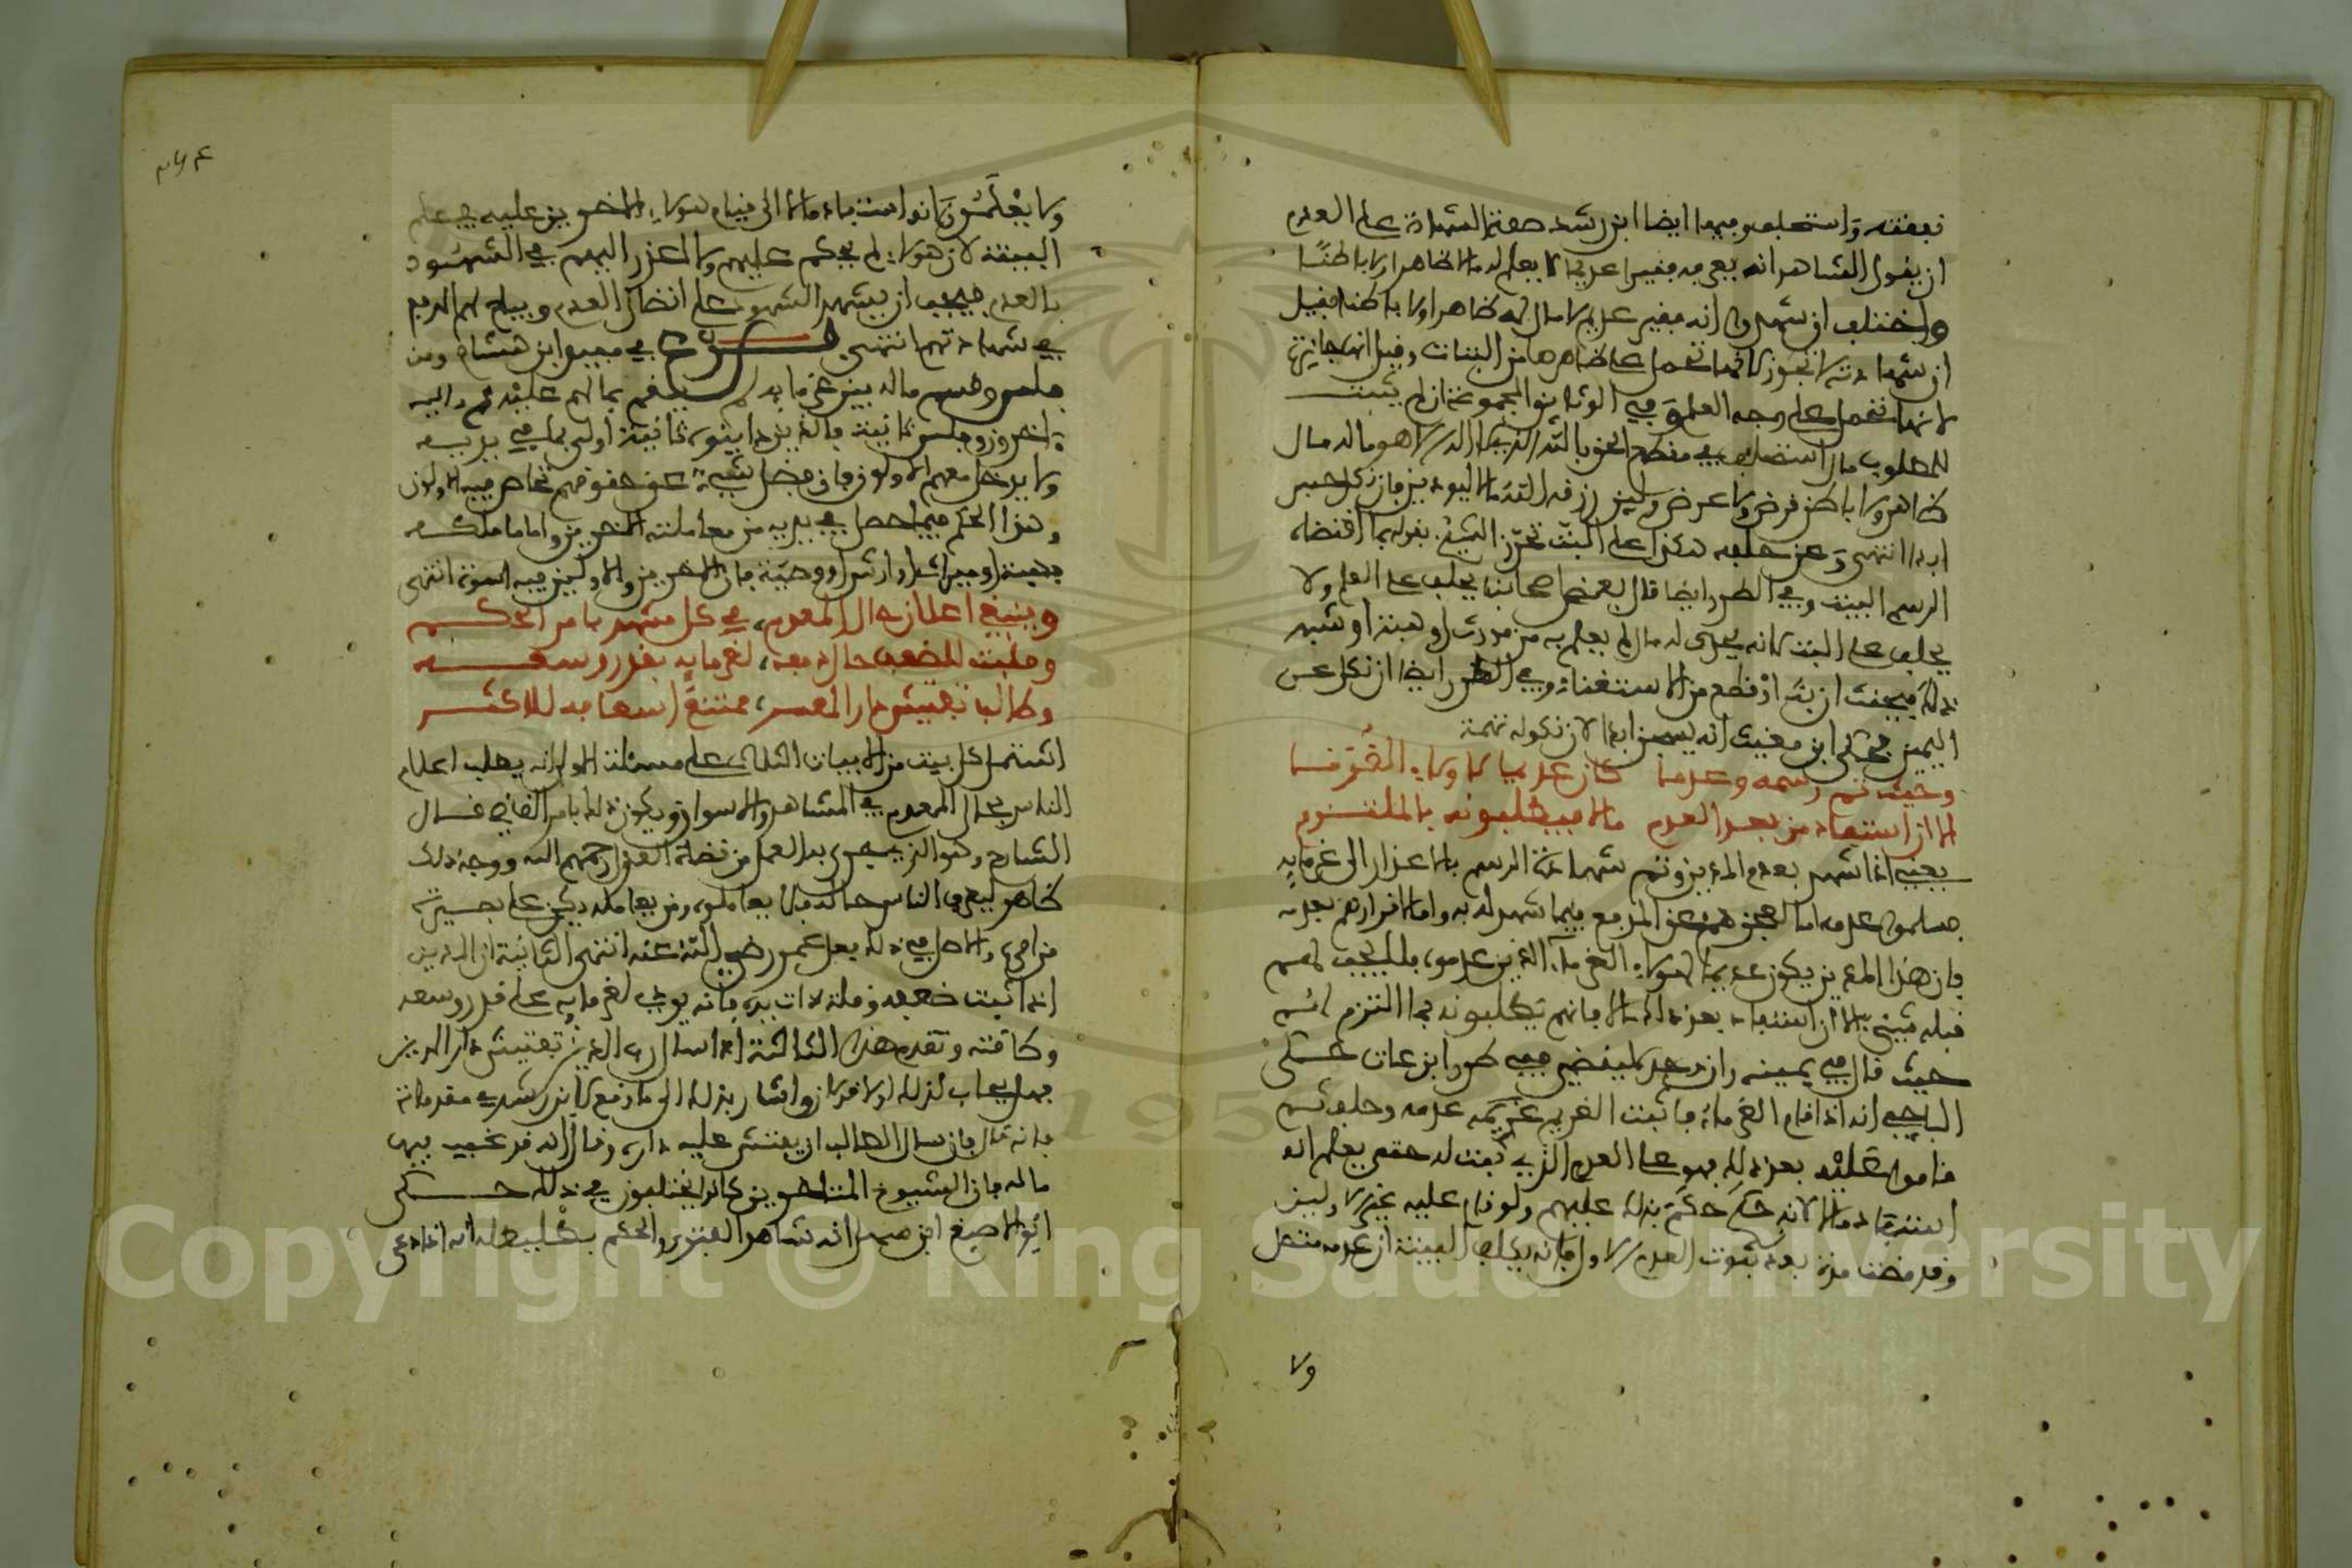 نفقته واستحلف وفيها ايضا ابن رشد صفة الشهادة على العدم
ان يقول الشاهد انه يعرفه فقيرا عديما لا يعلم له مالا ظاهرا ولا باطنا
واختلف ان شهدوا انه فقير عديم لا مال له ظاهرا ولا باطنا فقيل
ان شهادته لا تجوز لانها تحمل على ظاهرها من البتات وقيل انها جايزة
لانها تحمل على وجه العلم وفي الوثائق المجموعة ان لم يثبت
للمطلوب مال استحلف في مقطع الحق بالله الذي لا اله الا هو ماله مال
ظاهر ولا باطن قرض ولا عرض ولين رزقه الله مالا ليودين فان نكل حبس
ابدا انتهى وعن حلفه هكذا على البت تحرز الشيخ بقوله بما اقتضاه
الرسم اليمين وفي الطرر ايضا قال بعض اصحابنا يحلف على العلم ولا
يحلف على البت لانه يكون له مال لم يعلم به من مورث او هبة او شبه
ذلك فيحنث ان بت اذ قطع من الاستغناء وفي الطرر ايضا ان نكل عن
اليمين فحكى ابن مغيث انه يسجن ابدا لان نكوله تهمة
وحيث تم رسمه وعدما كان عديما لاولاء الغرما
الا ان استفاد من بعد العدم مالا فيطلبونه بالملتزم
يعني اذا شهد بعدم المدين وتم شهادة الرسم بالاعذار الى غرمايه
فسلموا عدمه اما لعجزهم عن المدفع فيما شهد له به واما لاقرارهم بعدمه
فان هذا المدين يكون عديما لهولاء الغرماء الذين عدموه فلا يجب لهم
قبله شيء الا ان استفاد بعد ذلك مالا فانهم يطلبونه بما التزم لهم
حيث قال في يمينه وان وجد ليقضي ففي طرر ابن عات حكى
الباجي انه اذا قام الغرماء فاثبت الغريم غريمه عدمه وحلف ثم
قاموا عليه بعد ذلك فهو على العدم الذي ثبت له حتى يعلم انه
استفاد مالا لانه حكم حكم بذلك عليهم ولو قام عليه غير الاولين
وقد مضت مدة بعد ثبوت العدم الاول فانه يكلف البينة ان عدمه متصل
ولا
ولا يعلمون انه استفاد مالا الى قيام هولاء الاخرين عليه في علم
البينة لان هولاء لم يحكم عليهم ولا اعذر اليهم في الشهود
بالعدم فيجب ان يشهد الشهود على اتصال العدم ويباح لهم المدفع
في شهادتهم انتهى فرع في مفيد ابن هشام ومن
فلس وقسم ماله بين غرمايه لم يقم بما لهم عليه ثم داينه
اخرون وفلس ثانية فالذين داينوه ثانية اولى بما في يديه
ولا يدخل معهم الاولون فان فضل شيء عن حقوقهم تحاص فيه الاولون
وهذا الحكم فيما حصل في يديه من معاملته الاخرين واما ما ملكه
بهبة او ميراث او ارش او وصية فان الاخرين والاولين فيه اسوة انتهى
وينبغي اعلان حال المعدم، في كل مشهد بامر الحكم
ومثبت للضعف حال دفعه، لغرمايه بقدر وسعه
وطالب تفتيش دار المعسر، ممتنع اسعافه للاكثر
اشتمل كل بيت من الابيات الثلاثة على مسئلة الاولى انه يطلب اعلام
الناس بحال المعدم في المشاهد والاسواق ويكون ذلك بامر القاضي قال
الشارح وهو الذي جرى به العمل من قضاة العدل رحمهم الله ووجه ذلك
ظاهر ليعرف الناس حاله فلا يعاملوه ومن يعامله يكن على بصيرة
من امره والاصل في ذلك فعل عمر رضي الله عنه انتهى الثانية ان المدين
اذا ثبت ضعفه وقلة ذات يده فانه يودي لغرمايه على قدر وسعه
وطاقته وتقدم هذا الثالثة اذا سال رب الدين تفتيش دار المدين
فهل يجاب لذلك او لا قولان واشار بذلك الى ما وقع لابن رشد في مقدماته
فانه قال فان سال الطالب ان يفتش عليه داره وقال انه قد غيب فيها
ماله فان الشيوخ المتاخرين كانوا يختلفون في ذلك حكى
ابو الاصبغ ابن سهل انه شاهد الفتوى والحكم بطليطلة انه اذا دعى